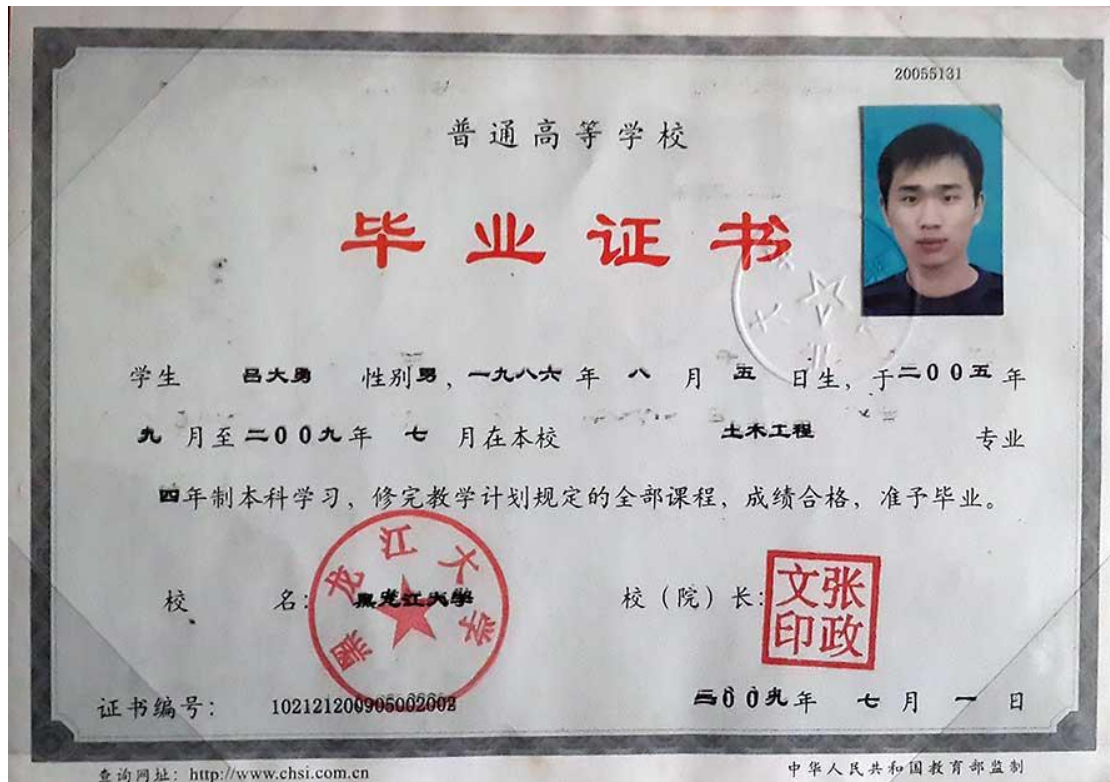 20055131
普通高等学校
毕业证书
学生 吕大勇 性别男，一九八六年 八 月 五 日生，于二00五年
九 月至二00九年 七 月在本校 土木工程 专业
四年制本科学习，修完教学计划规定的全部课程，成绩合格，准予毕业。
校 名：黑龙江大学 校（院）长：
黑龙江大学
张政文印
证书编号： 102121200905002002 二00九年 七 月 一 日
查询网址：http://www.chsi.com.cn 中华人民共和国教育部监制